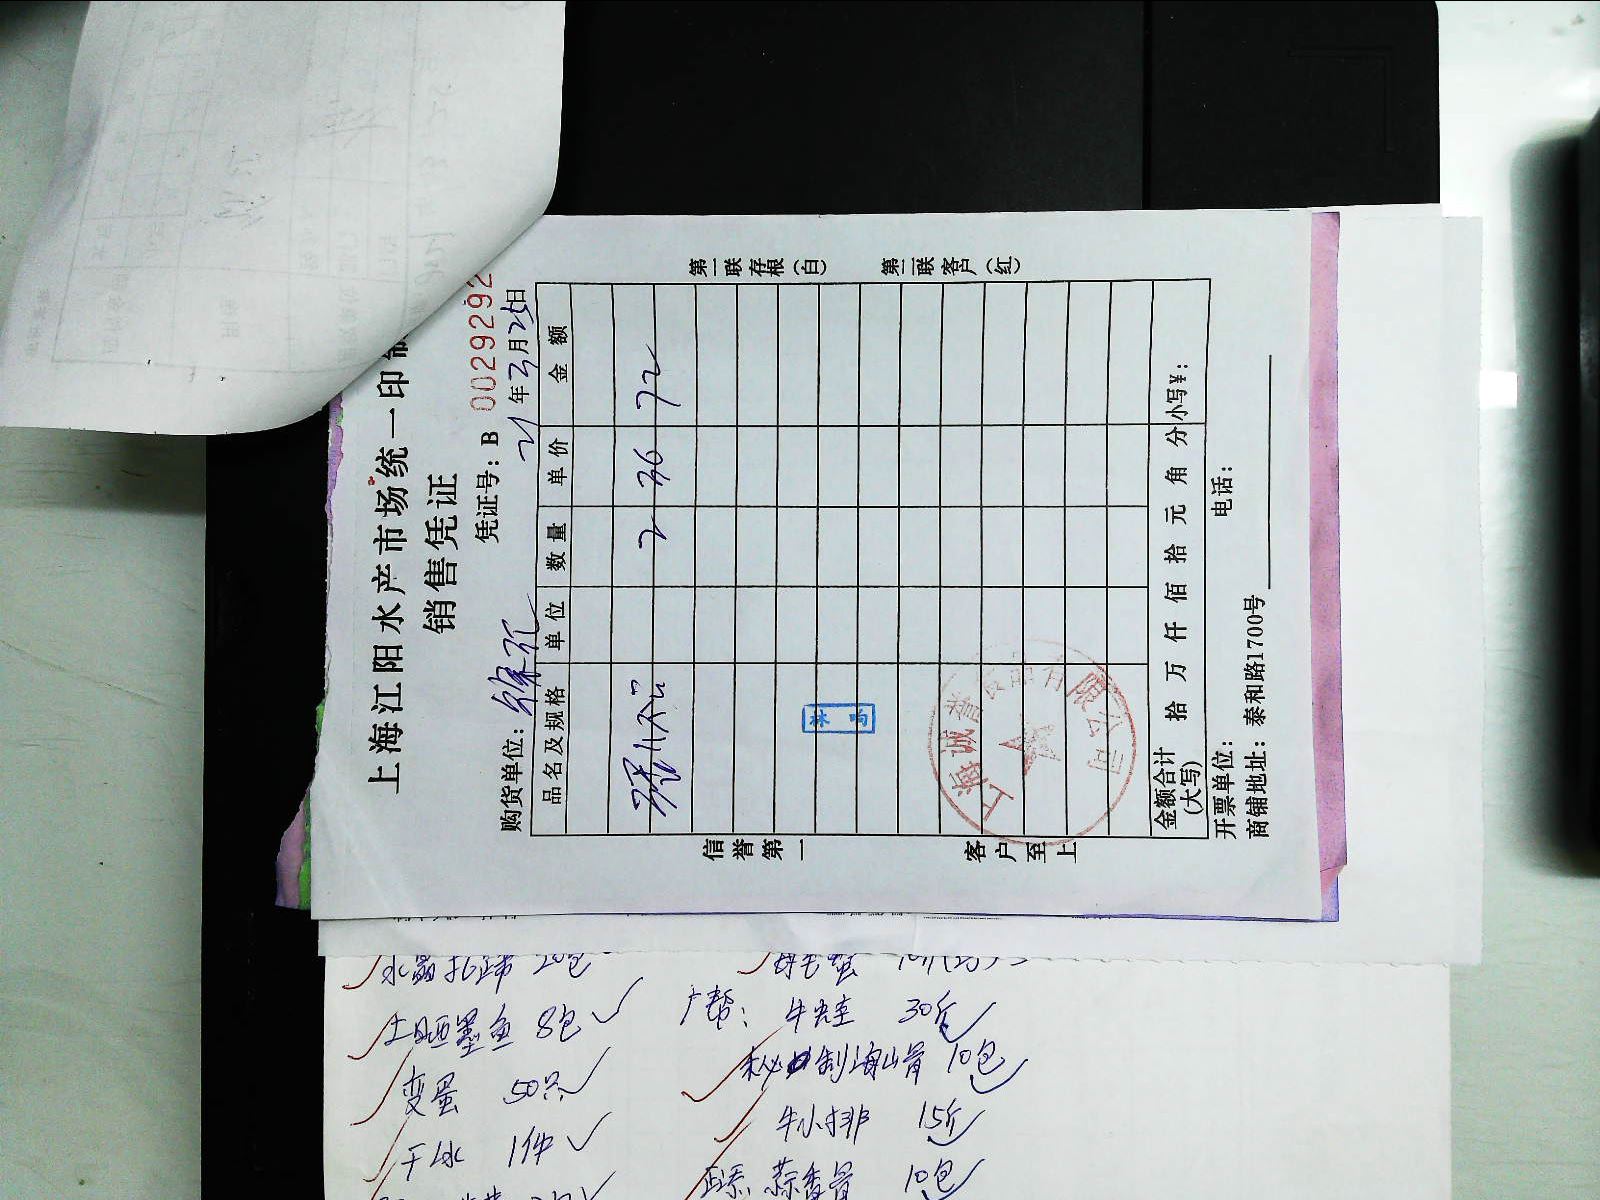 上海江阳水产市场统一印制
销售凭证
凭证号：B 0029292
购货单位：
21年3月25日
品名及规格 单位 数量 单价 金额
2 36 72
金额合计(大写) 拾 万 仟 佰 拾 元 角 分 小写¥：
开票单位： 电话：
商铺地址：泰和路1700号
信誉第一
客户至上
第一联存根（白）
第二联客户（红）
上海诚誉食品有限公司
20包
土晒墨鱼 8包
变蛋 50只
干冰 1件
广帮： 30斤
秘制海山骨 10包
牛小排 15斤
蒜香骨 10包